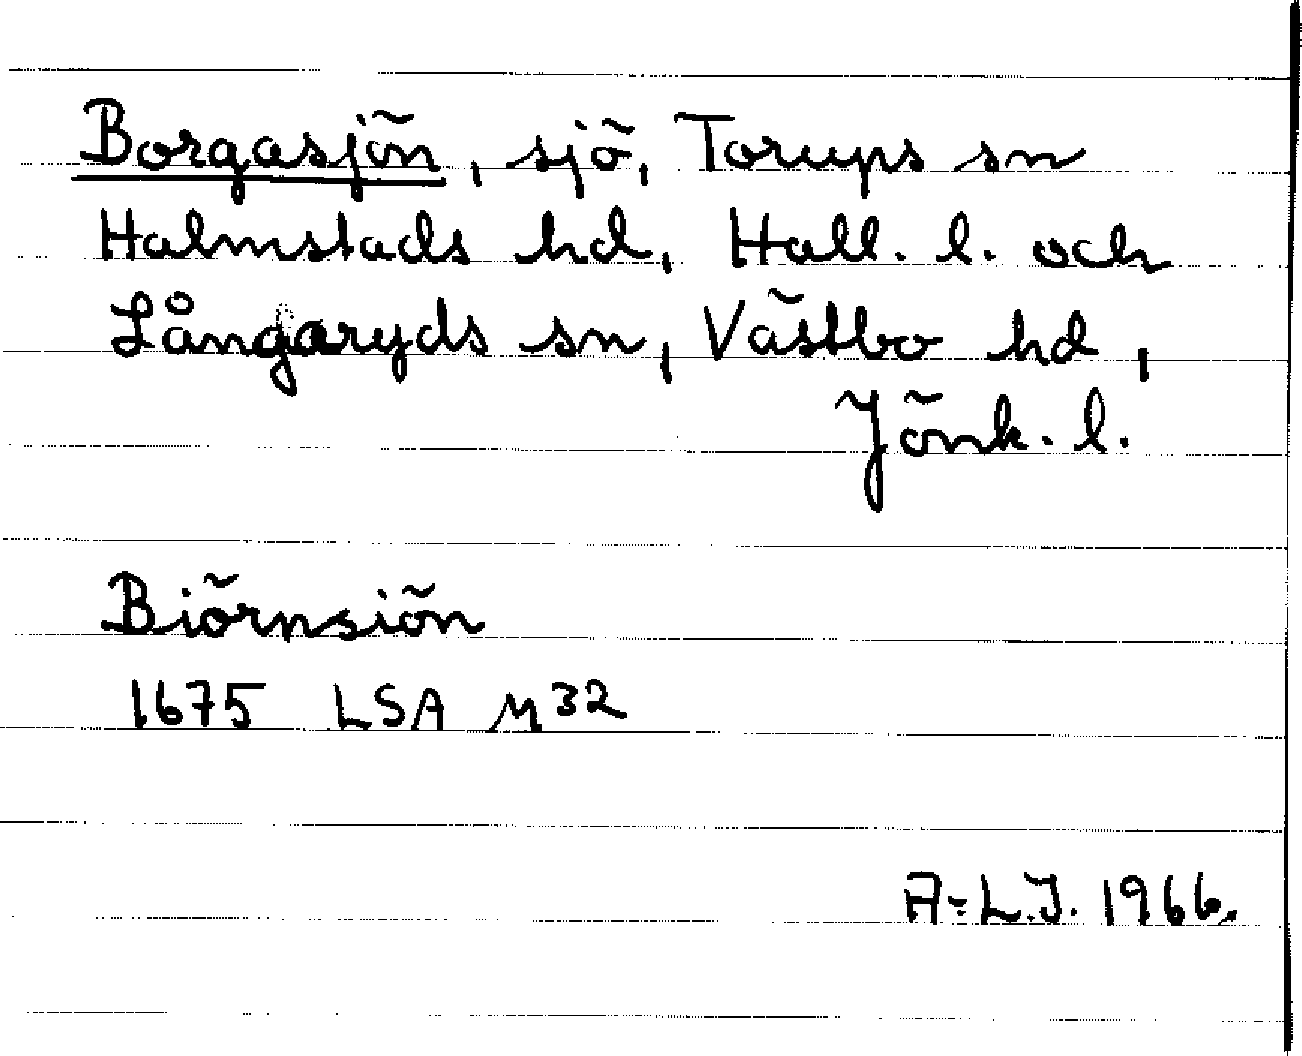 Borgasjön, sjö, Torups sn
Halmstads hd, Hall. l. och
Långaryds sn, Västbo hd,
Jönk. l.
Biörnsiön
1675 LSA M32
A-L.J. 1966.